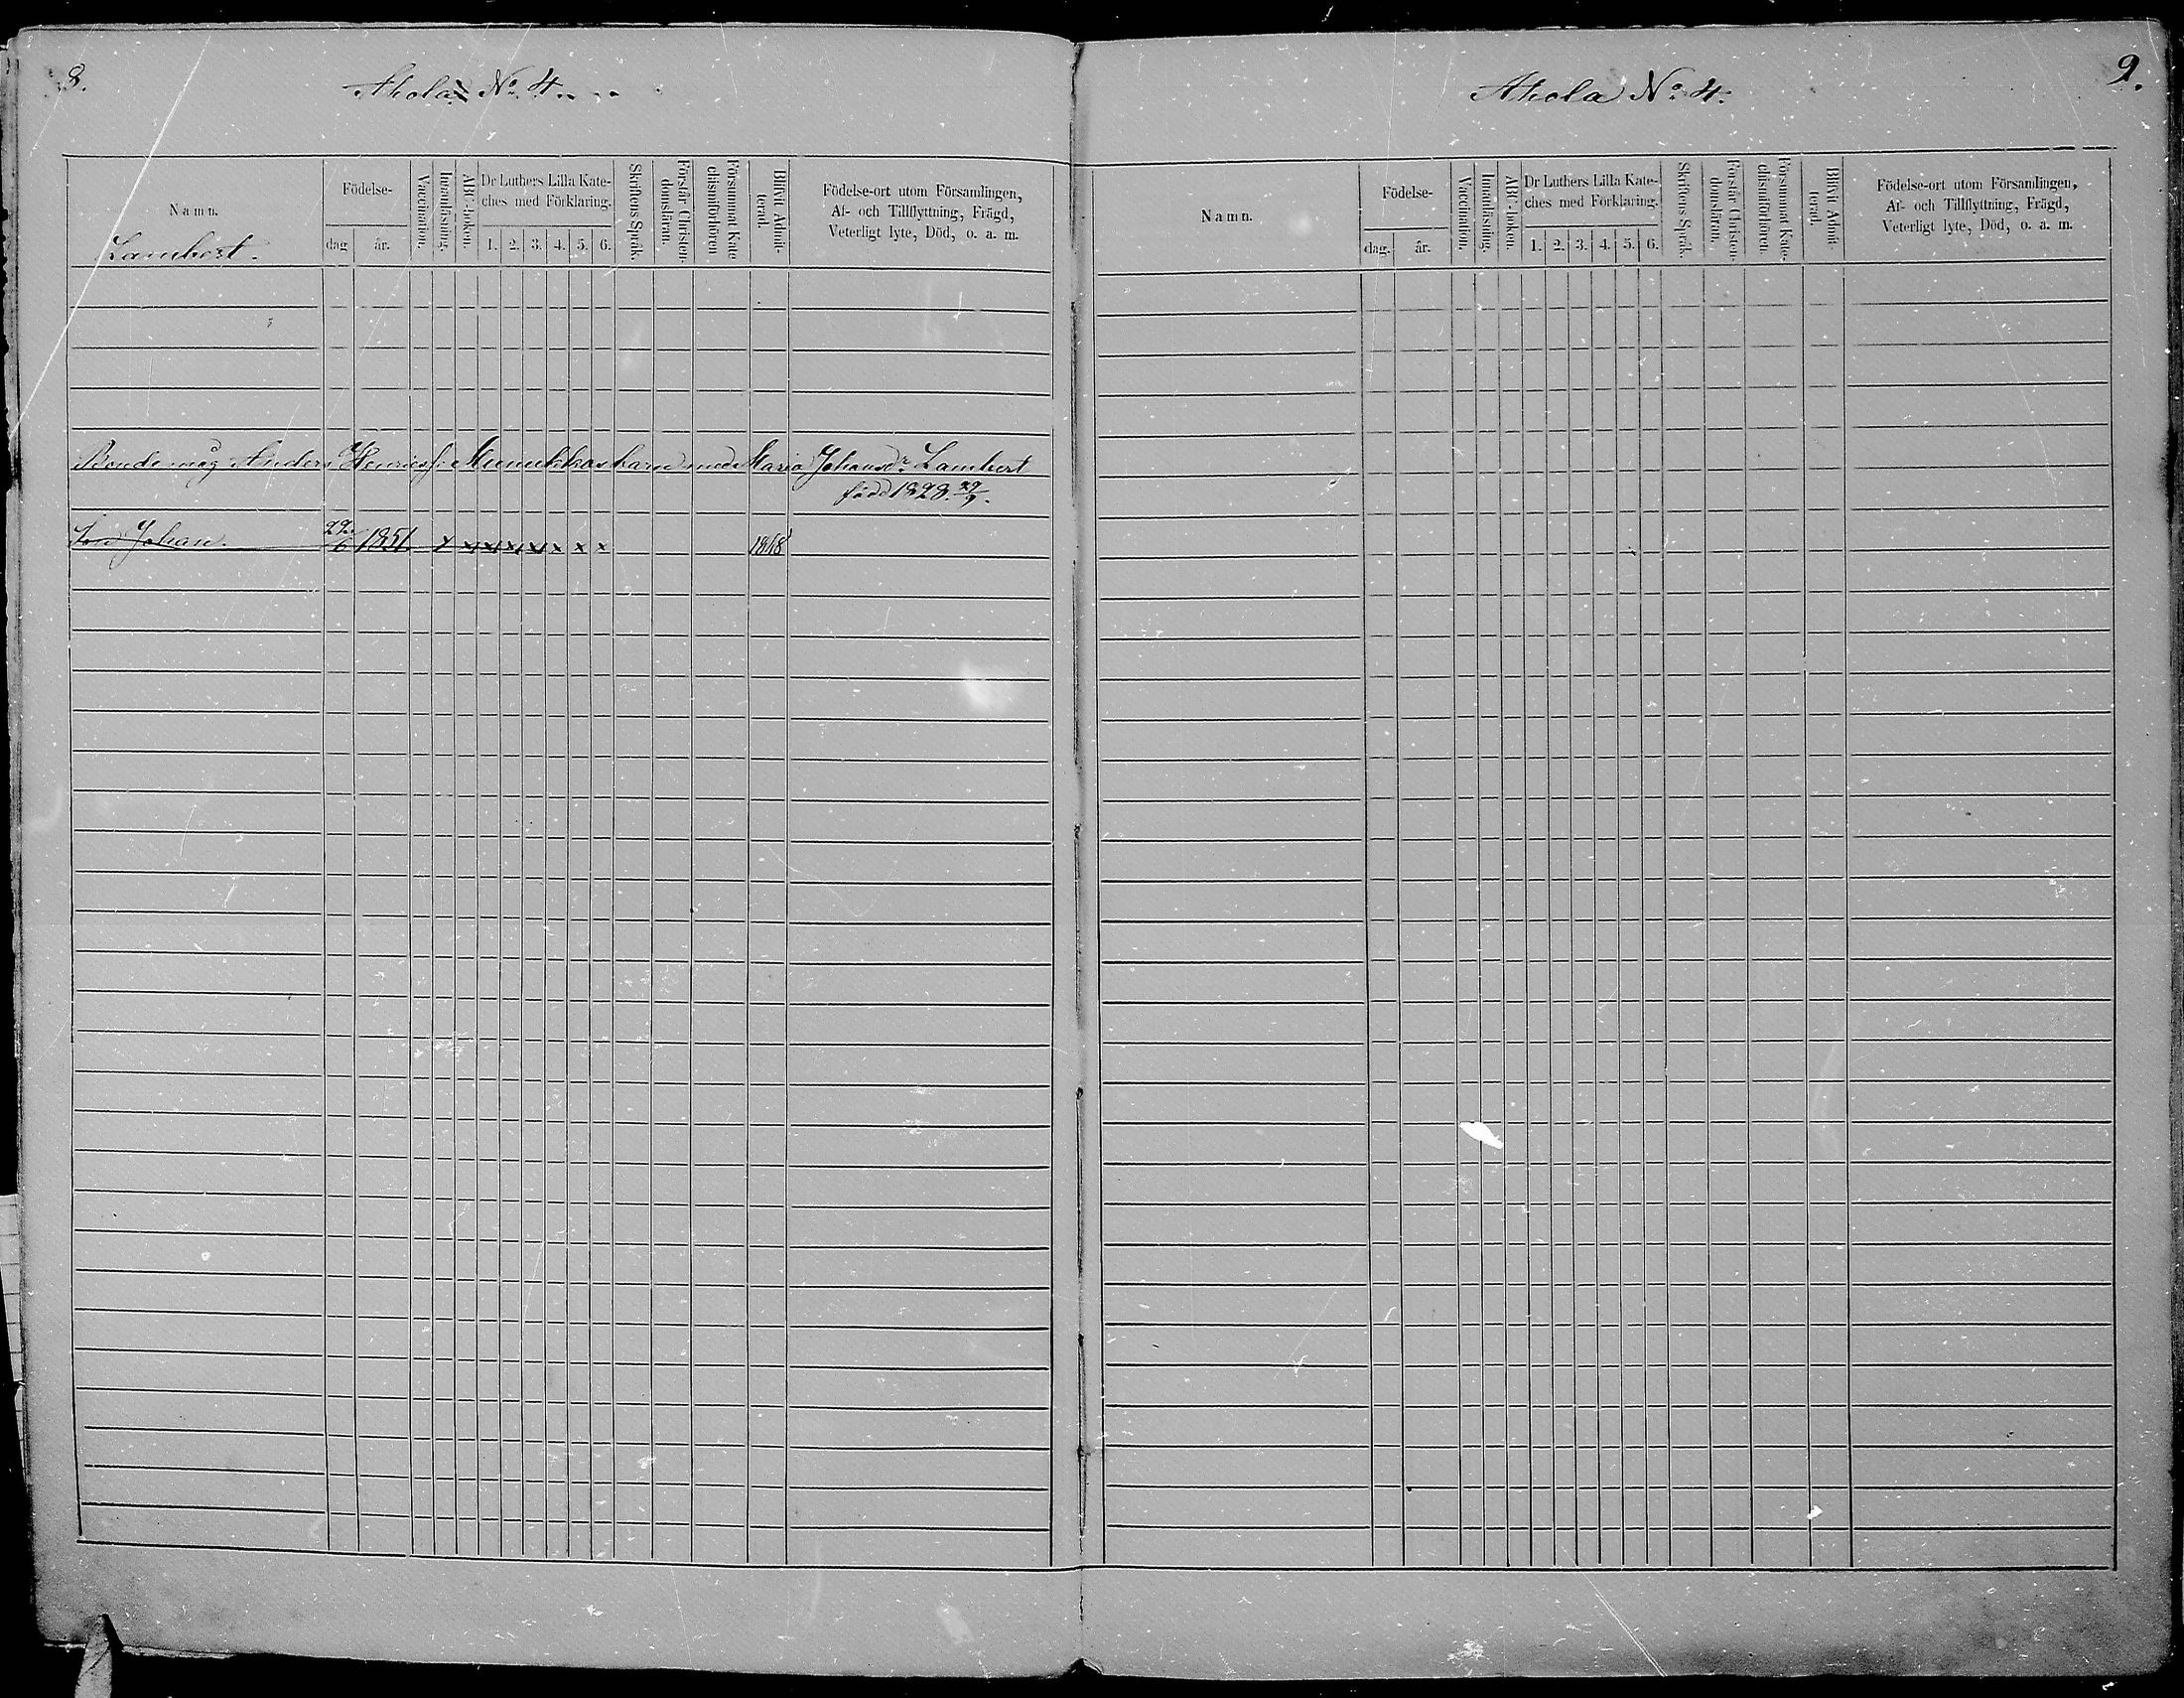 8.
Ahola No. 4.
Namn.
Födelse-
dag
år.
Vaccination.
Innanläsning.
ABC-boken.
Dr Luthers Lilla Kate-
ches med Förklaring.
1. 2. 3. 4. 5. 6.
Skriftens Språk.
Förstår Christen-
domsläran.
Försummat Kate
chismiförhören
Blifvit Admit-
terad.
Födelse-ort utom Församlingen,
Af- och Tillflyttning, Frägd,
Veterligt lyte, Död, o. a. m.
Lambert.
Bondemåg Anders Henricss: Munukkas barn med Maria Johansdr Lambert
född 1828. 29/9.
Son Johan. 22/6 1851 x x x x x x x x 1868
9.
Ahola No. 4.
Namn.
Födelse-
dag.
år.
Vaccination.
Innanläsning.
ABC-boken.
Dr Luthers Lilla Kate-
ches med Förklaring.
1. 2. 3. 4. 5. 6.
Skriftens Språk.
Förstår Christen-
domsläran.
Försummat Kate-
chismiförhören.
Blifvit Admit-
terad.
Födelse-ort utom Församlingen,
Af- och Tillflyttning, Frägd,
Veterligt lyte, Död, o. a. m.